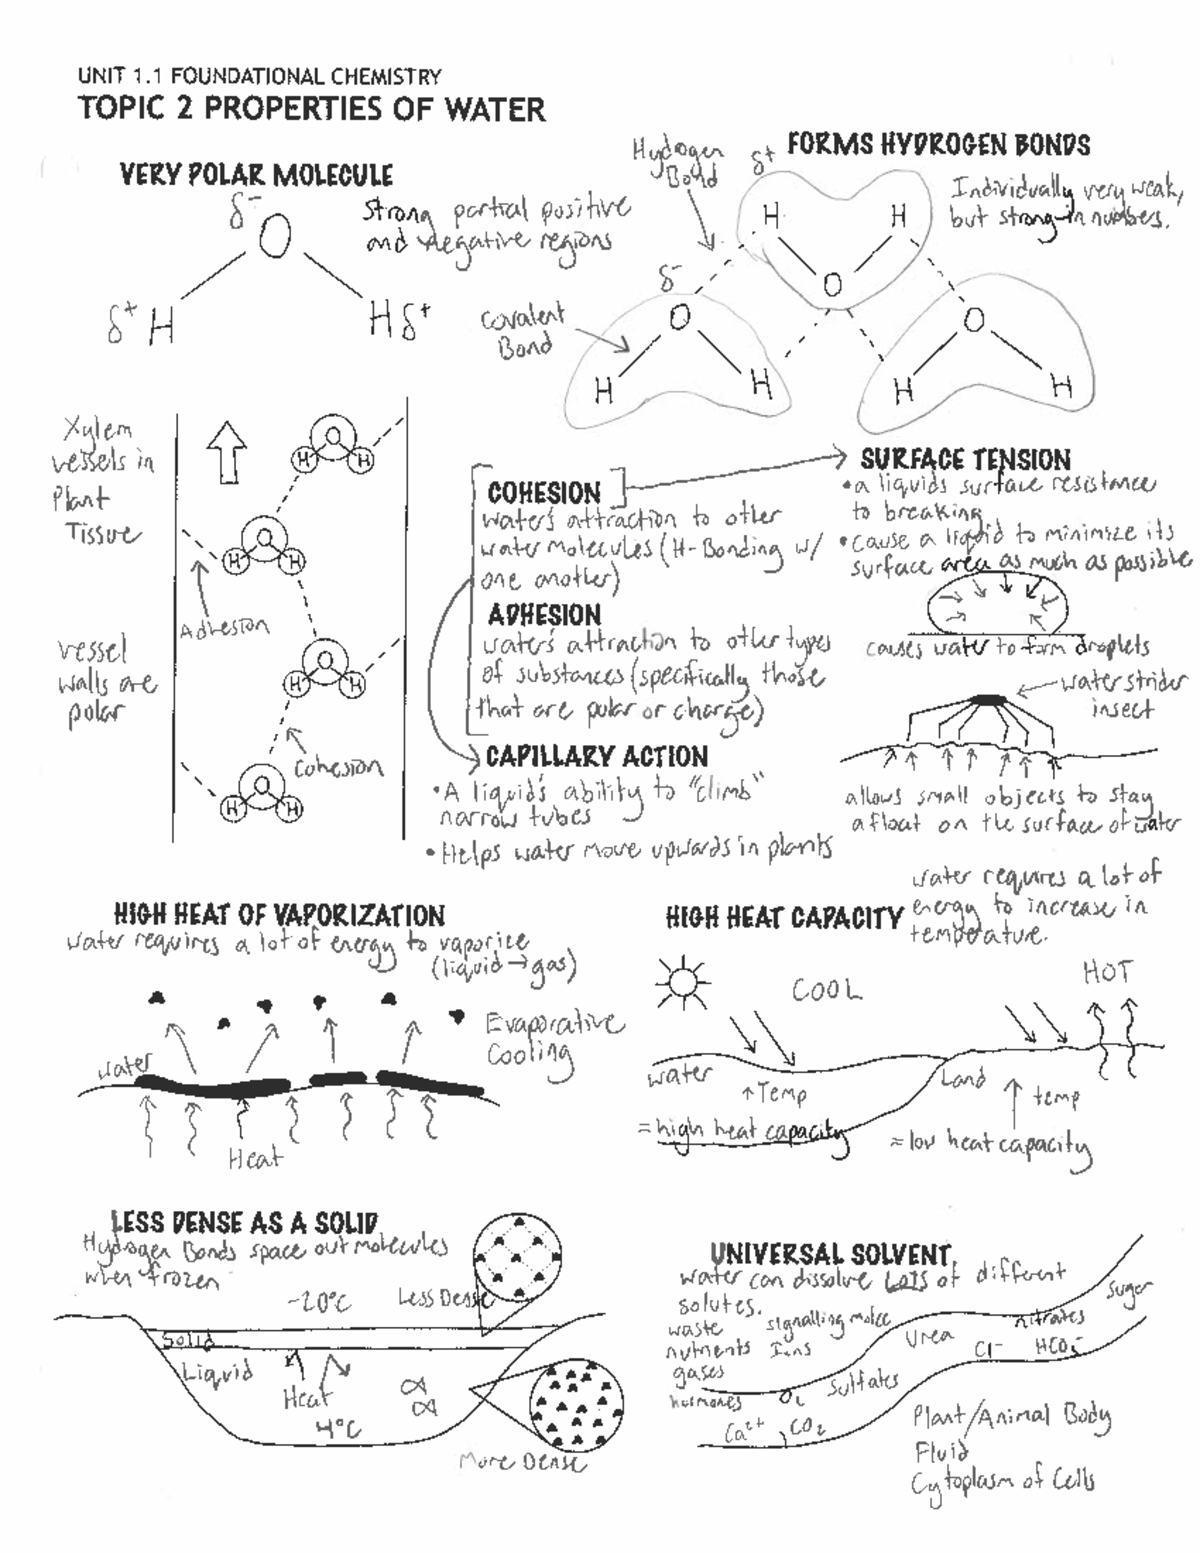 UNIT 1.1 FOUNDATIONAL CHEMISTRY
TOPIC 2 PROPERTIES OF WATER
VERY POLAR MOLECULE
Strong partial positive
and negative regions
δ-
O
δ+ H
H δ+
FORMS HYDROGEN BONDS
Hydrogen
Bond
δ+
Individually very weak,
but strong in numbers.
H H
O
δ-
Covalent
Bond
O
H H
O
H H
Xylem
vessels in
Plant
Tissue
Adhesion
vessel
walls are
polar
Cohesion
O
H H
O
H H
O
H H
O
H H
COHESION
water's attraction to other
water molecules (H-Bonding w/
one another)
ADHESION
water's attraction to other types
of substances (specifically those
that are polar or charge)
CAPILLARY ACTION
• A liquid's ability to "climb"
narrow tubes
• Helps water move upwards in plants
SURFACE TENSION
• a liquids surface resistance
to breaking
• cause a liquid to minimize its
surface area as much as possible
causes water to form droplets
water strider
insect
allows small objects to stay
afloat on the surface of water
HIGH HEAT OF VAPORIZATION
water requires a lot of energy to vaporize
(liquid → gas)
Evaporative
Cooling
water
Heat
HIGH HEAT CAPACITY
water requires a lot of
energy to increase in
temperature.
COOL
HOT
water
↑ Temp
= high heat capacity
Land
↑ temp
= low heat capacity
LESS DENSE AS A SOLID
Hydrogen Bonds space out molecules
when frozen
-20°C
Less Dense
Solid
Liquid
Heat
4°C
More Dense
UNIVERSAL SOLVENT
water can dissolve LOTS of different
solutes.
waste
nutrients
gases
hormones
signalling molce
Ions
Urea
nitrates
Sugar
Cl-
HCO3-
Sulfates
O2
Ca2+
CO2
Plant/Animal Body
Fluid
Cytoplasm of Cells